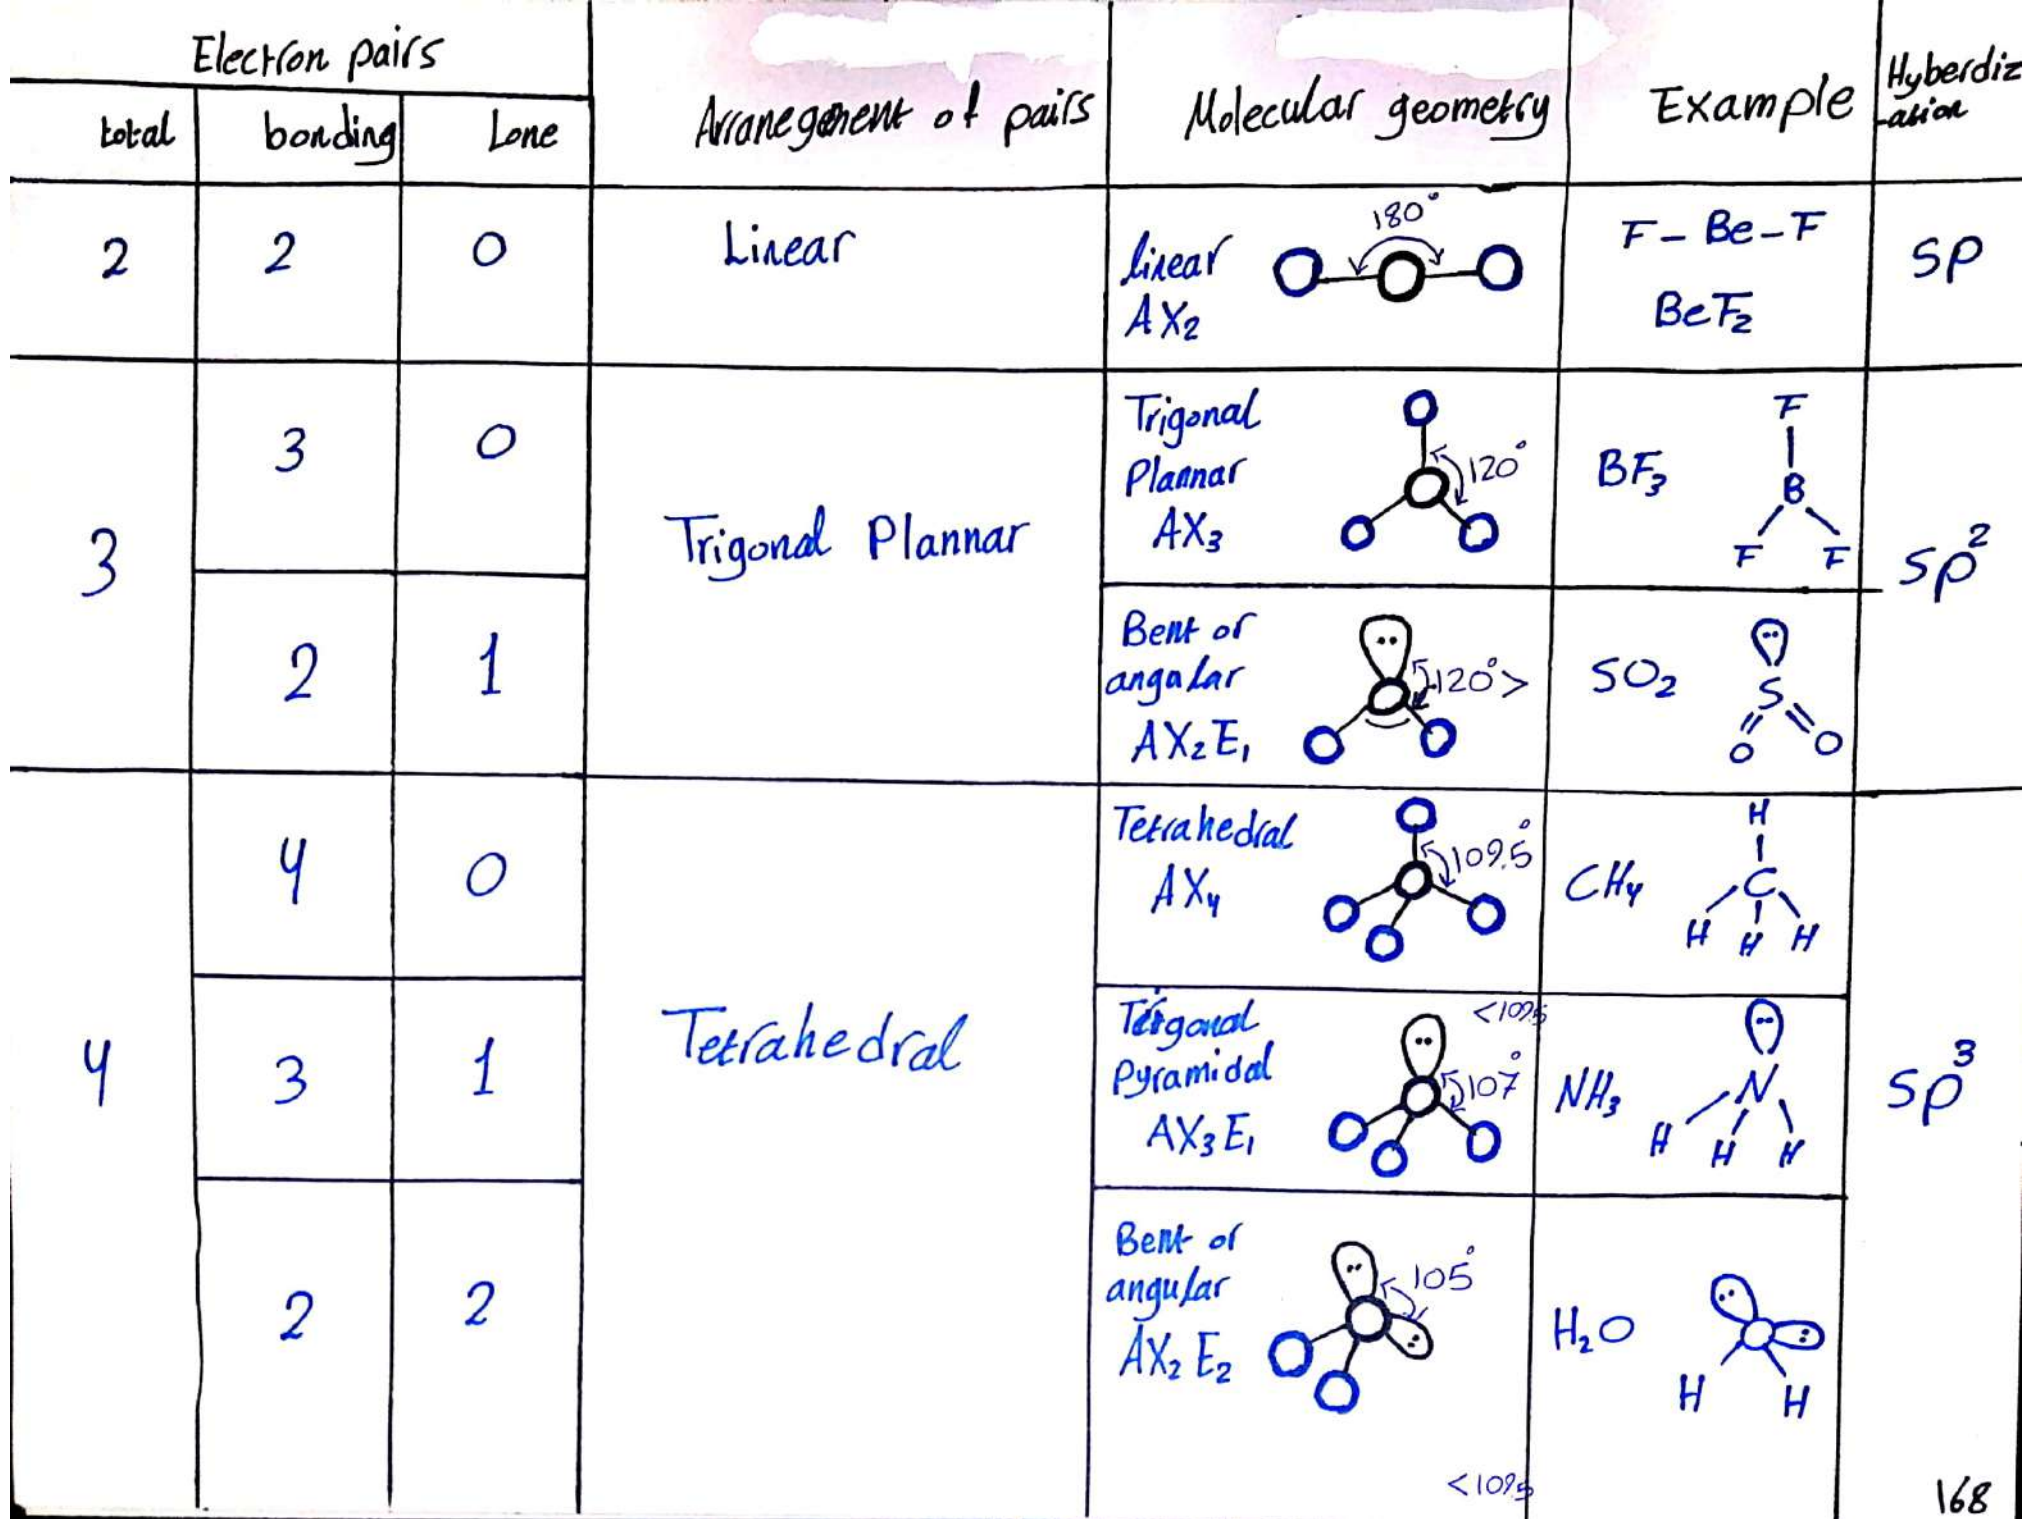 Electron pairs
total bonding Lone
Arranegement of pairs
Molecular geometry
Example
Hyberdiz
-ation
2 2 0
Linear
linear
AX₂
180°
F - Be - F
BeF₂
sp
3
3 0
Trigonal Plannar
Trigonal
Plannar
AX₃
120°
BF₃
F
B
F F
sp²
2 1
Bent or
angular
AX₂E₁
120°>
SO₂
S
O O
4
4 0
Tetrahedral
Tetrahedral
AX₄
109.5°
CH₄
H
C
H H H
sp³
3 1
Trigonal
Pyramidal
AX₃E₁
<109.5
107°
NH₃
N
H H H
2 2
Bent or
angular
AX₂E₂
105°
H₂O
H H
<109.5
168